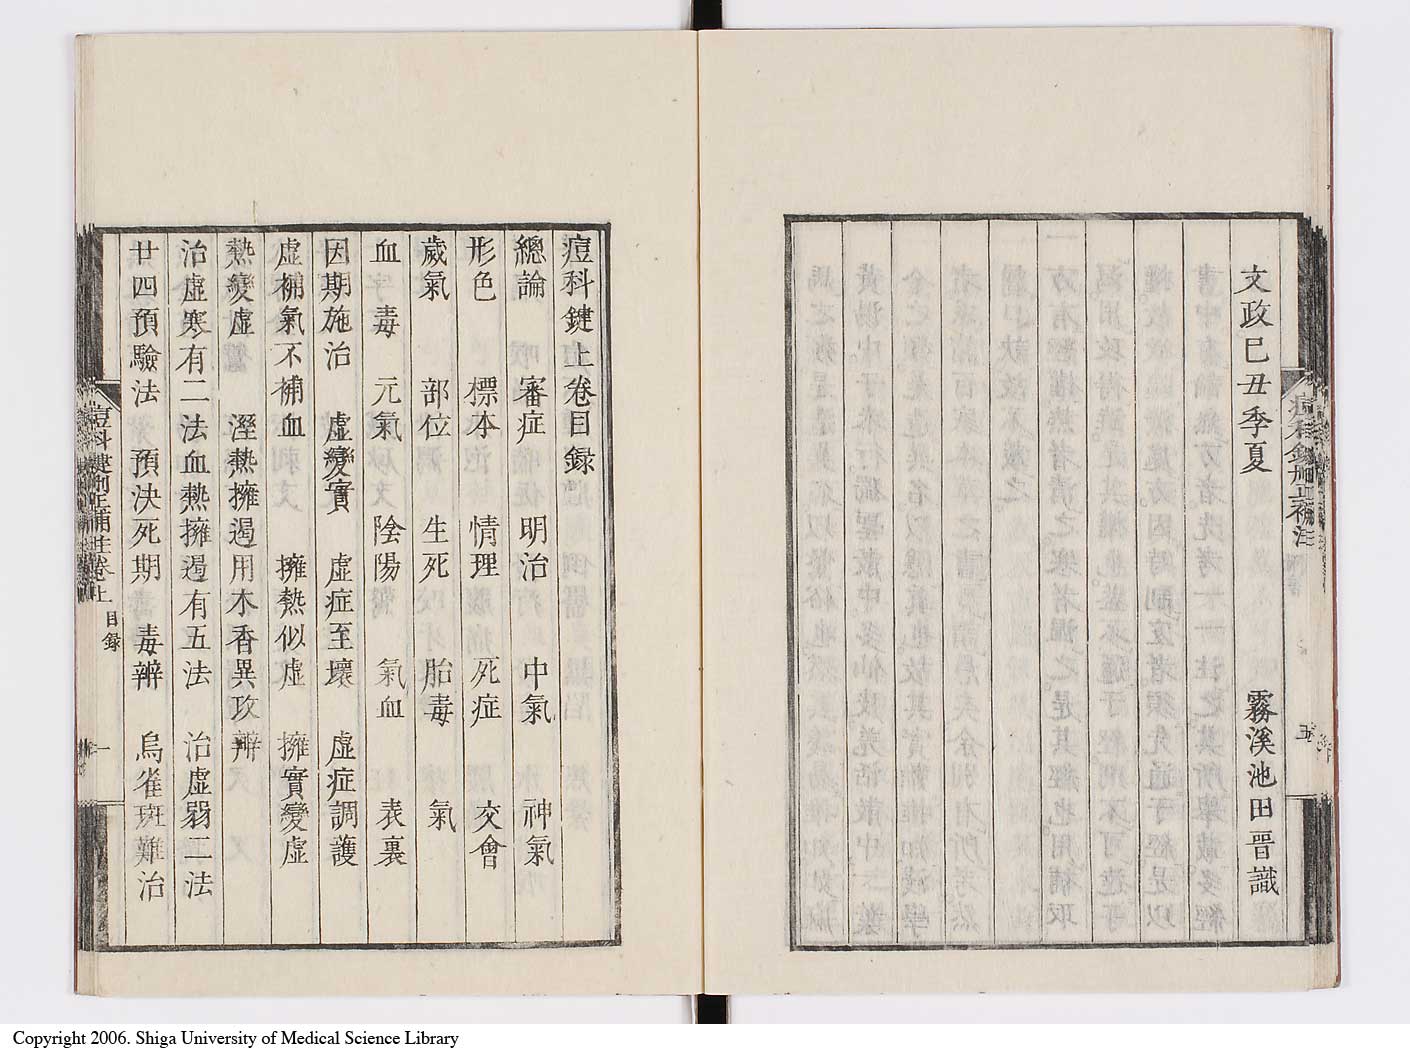 文政己丑季夏　霧溪池田晉識
五
痘科鍵上卷目録
總論　審症　明治　中氣　神氣
形色　標本　情理　死症　交會
歲氣　部位　生死　胎毒　氣
血　毒　元氣　陰陽　氣血　表裏
因期施治　虛變實　虛症至壞　虛症調護
虛補氣不補血　擁熱似虛　擁實變虛
熱變虛　溼熱擁遏用木香異攻辨
治虛寒有二法血熱擁遏有五法　治虛弱二法
廿四預驗法　預決死期　毒辨　烏雀斑難治
痘科鍵刪正補註卷上　目録　一
Copyright 2006. Shiga University of Medical Science Library